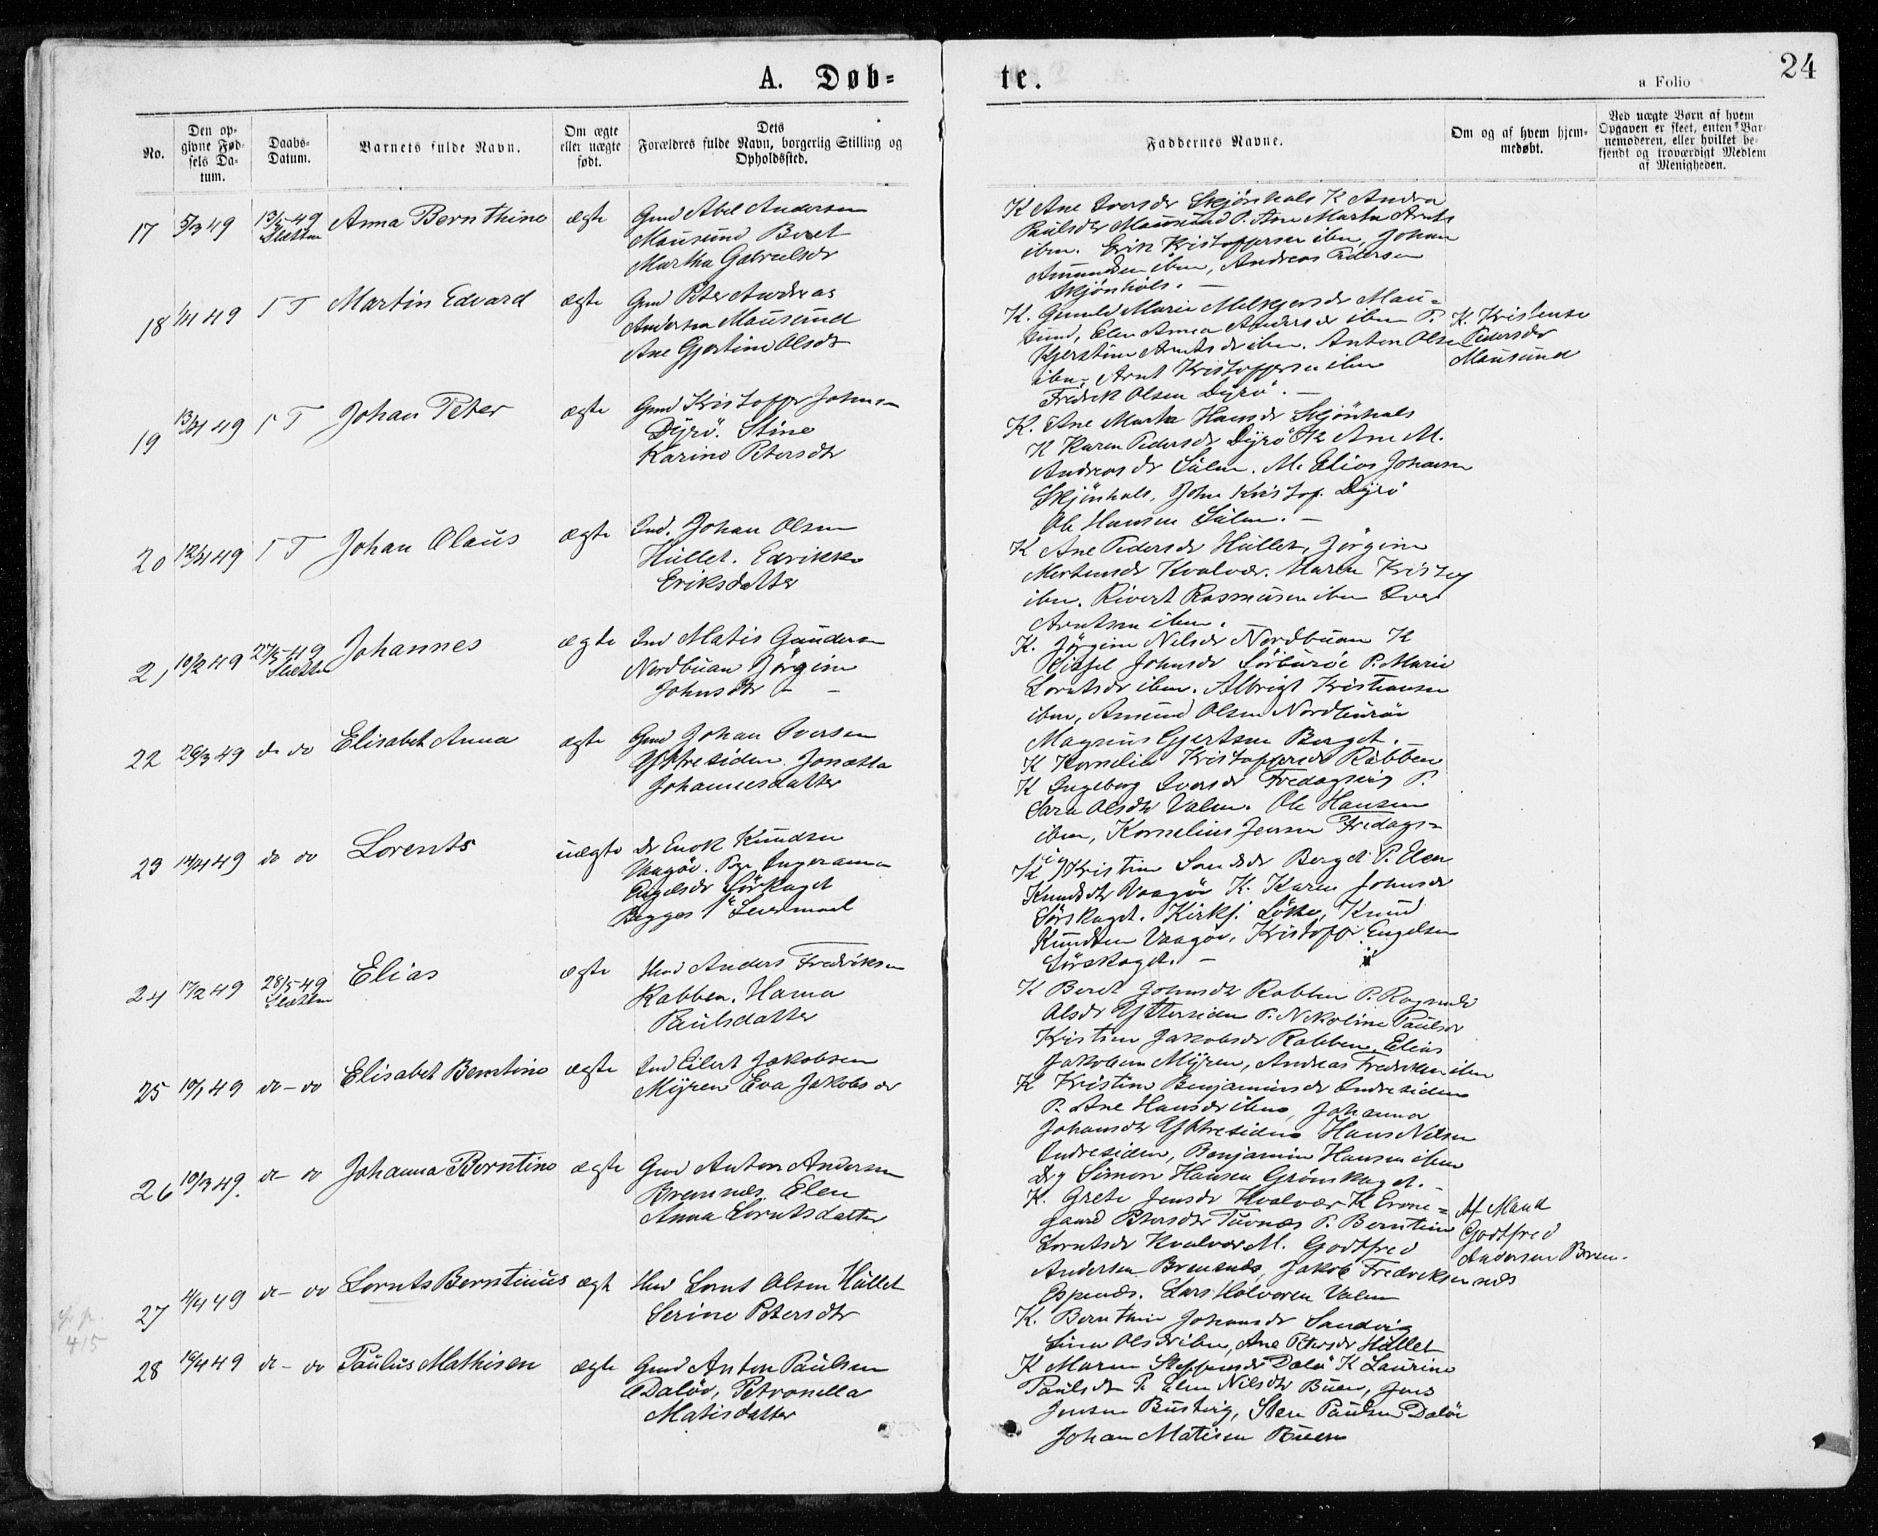 A. Døb=
te.
24
a Folio
No.
Den op-
givne Fød-
sels Da-
tum.
Daabs-
Datum.
Barnets fulde Navn.
Om ægte
eller uægte
født.
Dets
Forældres fulde Navn, borgerlig Stilling og
Opholdssted.
Faddernes Navne.
Om og af hvem hjem-
medøbt.
Ved uægte Børn af hvem
Opgaven er skeet, enten Bar-
nemoderen, eller hvilket be-
kjendt og troværdigt Medlem
af Menigheden.
17 5/3 49 13/5 49 Anna Bernthine ægte Gmd Abel Andersen
Sletten
Mausund Beret
Martha Gabrielsdr
K Ane Iversdr Skjönhals K Andrea
Paulsdtr Mausund P. Ane Marta Arnts
ibm. Erik Kristoffersen ibm, Johan
Amundsen ibm, Andreas Pedersen
Skjönhals. —
18 1/4 49 T Martin Edvard ægte Gmd Peter Andreas
Andersen Mausund
Ane Gjertine Olsdtr
K. Gunild Marie Melkjersdr Mau=
sund, Elen Anna Andersdr ibm P.
Kjerstine Arntsdr ibm. Anton Olsen
ibm, Arnt Kristoffersen ibm
Fredrik Olsen Dyrö. —
K. Kristense
Pedersdr
Mausund
19 13/4 49 T Johan Peter ægte Gmd Kristoffer Johnsen
Dyrö. Stine
Karine Petersdtr
K. Ane Marta Hansdr Skjönhals
K Karen Pedersdr Dyrö K Ane M.
Andreasdr Sulen. M. Elias Johansen
Skjönhals, John Kristof. Dyrö
Ole Hansen Sulen. —
20 12/4 49 T Johan Olaus ægte Ind. Johan Olsen
Hullet. Edrikke
Eriksdatter
K Ane Pedersdr Hullet, Jörgine
Mortensdr Kvalvær. Maren Kristof
ibm. Sivert Rasmusen ibm Iver
Arntsen ibm.
21 10/2 49 27/5 49 Johannes ægte Ind Matis Gundersen
Sletten
Nordbuan Jörgine
Johnsdtr — —
K. Jörgine Nelsdr Nordbuan K
Sissel Johnsdr Sörburöe P. Marie
Lorntsdr ibm. Albrigt Kristiansen
ibm, Amund Olsen Nordburöe
Magnus Gjertsen Berget. —
22 26/3 49 do do Elisabet Anna ægte Gmd Johan Iversen
Yttresiden. Jonetta
Johannesdatter
K Kornelia Kristoffersdr Rabben
K Ingeborg Iversdr Fredagsvig P.
Sara Olsdtr Valen. Ole Hansen
ibm, Kornelius Jensen Fredags=
vig
23 14/4 49 do do Lorents uægte Dr Enok Knudsen
Vaagöe. Pge Ingeranna
Engelsdr Sörskaget
Begges 1ste Leiermaal
K Kristine Samdsdr Berget P. Elen
Knudsdtr Vaagöe K. Karen Johnsdr
Sörskaget. Kirks. Löke, Knud
Knudsen Vaagöe, Kristoffer Engelsen
Sörskaget. —
24 17/2 49 28/5 49 Elias ægte Hmd Anders Fredriksen
Sletten
Rabben. Hanna
Paulsdatter
K Beret Johnsdtr Rabben P. Ragnild
Olsdr Yttersiden P. Nekoline Paulsdr
Kristine Jakobsdr Rabben Elias
Jakobsen Myren, Andreas Fredriksen ibm
25 10/1 49 do — do Elisabet Berntine ægte Ind Eilert Jakobsen
Myren Eva Jakobsdr
K Kristine Benjaminsdr Indresiden
P. Ane Hansdr ibm, Johanna
Johansdtr Yttresiden Hans Nelsen
Indresiden, Benjamin Hansen ibm
og Simon Hansen Grönskaget. —
26 10/3 49. do — do Johanna Berntine ægte Gmd Anton Andersen
Bremnes. Elen
Anna Lorntsdatter
K. Grete Jensdr Kvalvær K Erone=
gaard Petersdtr Tuvnes P. Berntine
Lorntsdr Kvalvær M. Godtfred
Andersen Bremnes, Jakob Fredriksen
Espenæs. Lars Halvorsen Valen
Af Mand
Godtfred
Andersen Brem-
nes
27 4/4 49 do — do Lornts Berntinus ægt Hmd Lornt Olsen Hullet
Serine Petersdtr
K. Bernthine Johansdr Sandvig
Sina Olsdr ibm, Ane Petersdr Hullet
28 15/4 49 do — do Paulus Mathisen ægte Gmd Anton Paulsen
Dalöe, Petronella
Matisdatter
K Maren Steffensdr Dalö K Laurine
Paulsdtr P Elen Nilsdtr Buen, Jens
Jensen Bustvig, Sten Paulsen Dalöe
Johan Matisen Buen
415